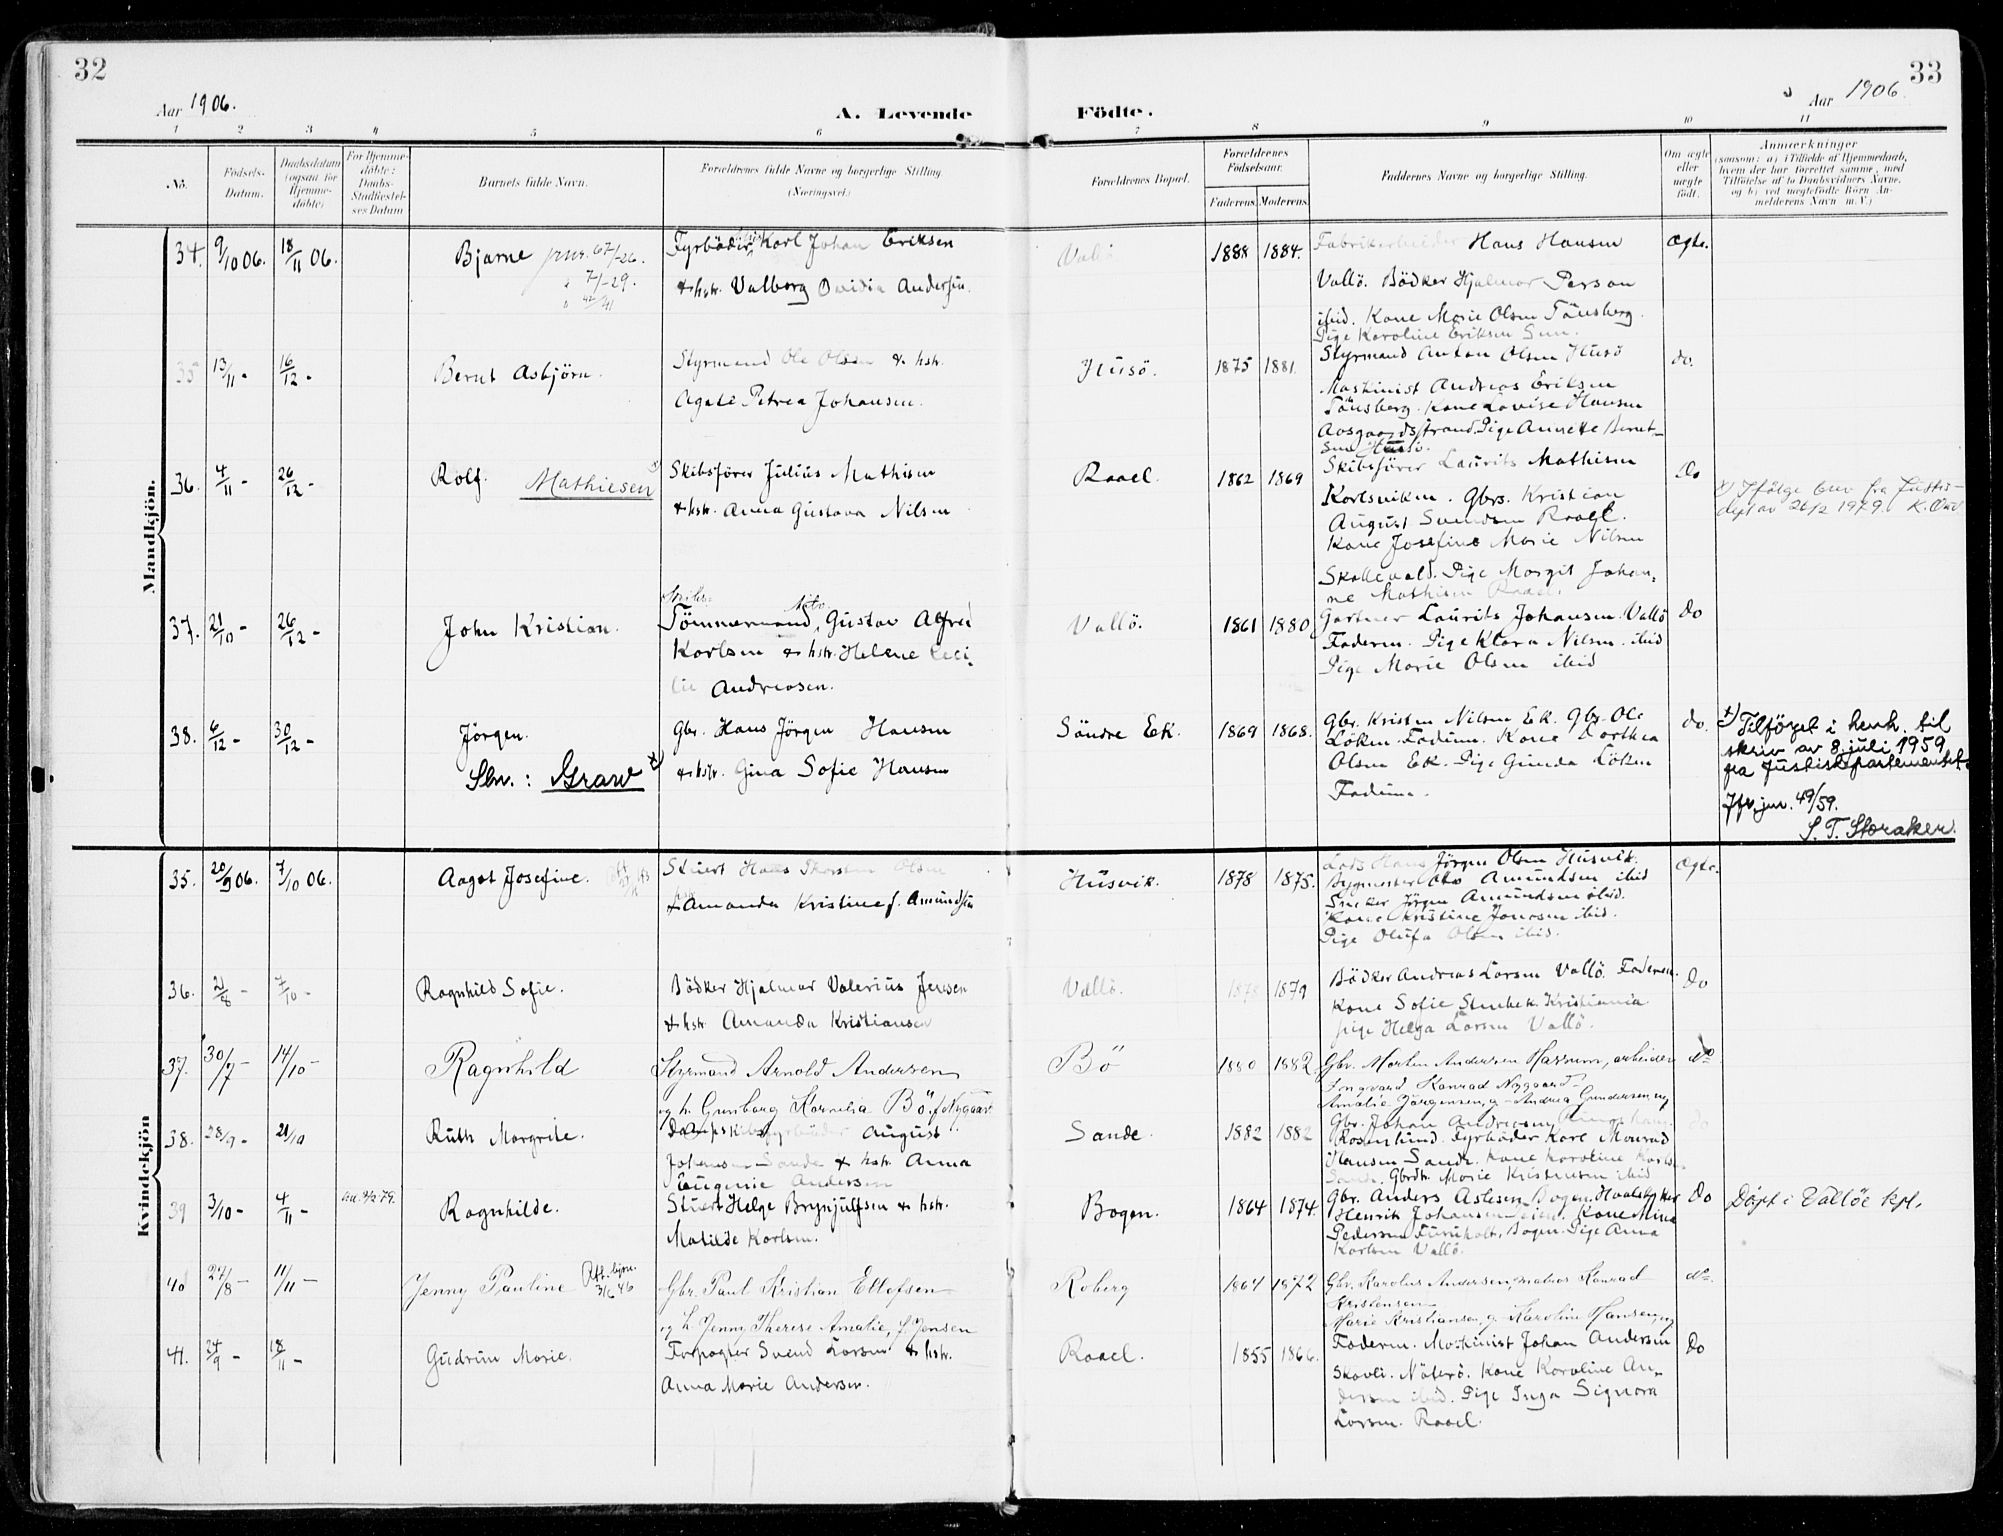 32
33
Aar 1906.
A. Levende
Födte.
Aar 1906
1 2 3 4 5 6 7 8 9 10 11
No.
Födsels-
Datum.
Daabsdatum
(ogsaa for
Hjemme-
döbte)
For Hjemme-
döbte:
Daabs-
Stadfæstel-
ses Datum
Barnets fulde Navn.
Forældrenes fulde Navne og borgerlige Stilling.
(Næringsvei.)
Forældrenes Bopæl.
Forældrenes
Födselsaar.
Faderens. Moderens.
Faddernes Navne og borgerlige Stilling.
Om ægte
eller
uægte
födt.
Anmærkninger
(saasom: a) i Tilfælde af Hjemmedaab,
hvem der har forrettet samme, med
Tilföielse af to Daabsvidners Navne.
og b) ved uægtefödte Börn An-
melderens Navn m. V.)
Mandkjön.
34. 9/10 06. 18/11 06. Bjarne
67/-26.
7/-29.
42/41
Fyrböder Karl Johan Eriksen
& hstr. Valborg Ovidia Andersen.
Vallö. 1888 1884.
Fabrikarbeider Hans Hansen
Vallö. Bödker Hjalmar Person
ibid. Kone Marie Olsen Tönsberg.
Pige Karoline Eriksen
Ægte.
35 13/11 - 16/12 - Bernt Asbjörn.
Styrmand Ole Olsen & hstr.
Agate Petrea Johansen.
Husö. 1875 1881.
Styrmand Anton Olsen Husö
Maskinist Andreas Eriksen
Tönsberg. Kone Lovise Hansen
Aasgaardsstrand. Pige Annette Bernt-
sen Husö.
do.
36. 4/11 - 26/12 - Rolf. Mathiesen x)
Skibsförer Julius Mathisen
& hstr. Anna Gustava Nilsen
Raael. 1862 1869
Skibsförer Laurits Mathisen
Karlsviken. Gbrs. Kristian
August Svendsen Raael.
Kone Josefine Marie Nilsen
Skallevold. Pige Margit Johan-
ne Mathisen Raael.
Do
x) Ifölge brev fra Justis-
dept av 26/2 1979.
37. 21/10 - 26/12 - John Kristian.
Tömmermand, Gustav Alfred
Karlsen & hstr. Helene Ceci-
lie Andreasen.
Vallö. 1861 1880
Gartner Laurits Johansen. Vallö
Faderen. Pige Klara Nilsen. ibid
Pige Marie Olsen ibid
Do
38. 6/12 - 30/12 - Jörgen.
Slnv.: Graw x)
Gbr. Hans Jörgen Hansen
& hstr. Gina Sofie Hansen
Söndre Eek. 1869 1868.
Gbr. Kristen Nilsen Ek. Gbr. Ole
Löken. Fadum. Kone Dorthea
Olsen Ek. Pige Gunda Löken
Fadum.
do.
x) Tilföyet i henh. til
skriv av 8. juli 1959
fra Justisdepartementet.
Jfr. jnr. 49/59.
S. T. Storaker.
Kvindekjön
35. 20/9 06. 7/10 06. Aagot Josefine.
Stuert Hans Thorsten Olsen
& Amanda Kristine f. Amundsen
Husvik. 1878 1875.
Lods Hans Jörgen Olsen Husvik.
Bygmester Otto Amundsen ibid
Snekker Jörgen Amundsen ibid.
Kone Kristine Jonassen ibid.
Pige Olufa Olsen ibid.
Ægte.
36. 2/8 - 7/10 - Ragnhild Sofie.
Bödker Hjalmar Valerius Jensen
& hstr. Amanda Kristiansen
Vallö. 1878 1879
Bödker Andreas Larsen Vallö. Faderen.
Kone Sofie Stenbek. Kristiania
pige Helga Larsen Vallö.
Do
37. 30/7 - 14/10 - Ragnhild
Styrmand Arnold Andersen
og h. Gunborg Kornelia Bö, f. Nygaard
Bö 1880 1882.
Gbr. Morten Andersen Hassum, arbeider
Ingvard Konrad Nygaard
Amalie Jörgensen, g. Andrea Gundersen, ug
do
38. 28/9 - 21/10 Ruth Margrete.
Dampskibsfyrböder August
Johansen Sande & hstr. Anna
Eugenie Andersen
Sande. 1882 1882
Gbr. Johan Andreasen
Rosenlund. Fyrböder Karl Konrad
Hansen Sande. Kone Karoline Karls-
Sande. Gbrdtr. Marie Kristensen ibid
do
39 3/10 - 4/11 - Ragnhilde.
Stuert Helge Brynjulfsen & hstr.
Matilde Karlsen.
Bogen. 1864 1874.
Gbr. Anders Aslesen Bogen. Hvalskytter
Henrik Johansen Kone Mina
Pedersen Furuholt, Bogen. Pige Anna
Karlsen Vallö.
Do
Döpt i Vallöe kpl.
40 27/8 - 11/11 - Jenny Pauline
3/6 46
Gbr. Paul Kristian Ellefsen
og h. Jenny Therese Amalie, f. Jensen
Roberg 1864 1872
Gbr. Karolus Andersen, matros Konrad
Kristensen
Marie Kristiansen, g. Karoline Hansen, ug
do.
41. 24/9 - 18/11 - Gudrun Marie.
Forpagter Svend Larsen & hstr.
Anna Marie Andersen.
Raael. 1855 1866.
Faderen. Maskinist Johan Andersen
Skovli. Nöterö. Kone Karoline An-
dersen ibid. Pige Inga Signora
Larsen. Raael.
Do